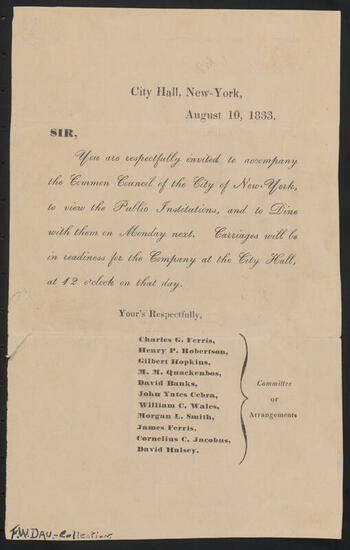 City Hall, New-York,
August 10, 1833.
SIR,
You are respectfully invited to accompany
the Common Council of the City of New-York,
to view the Public Institutions, and to Dine
with them on Monday next. Carriages will be
in readiness for the Company at the City Hall,
at 12 o'clock on that day.
Your's Respectfully,
Charles G. Ferris,
Henry P. Robertson,
Gilbert Hopkins,
M. M. Quackenbos,
David Banks,
John Yates Cebra,
William C. Wales,
Morgan L. Smith,
James Ferris,
Cornelius C. Jacobus,
David Halsey.
Committee
or
Arrangements
F.W. DAU-Collection